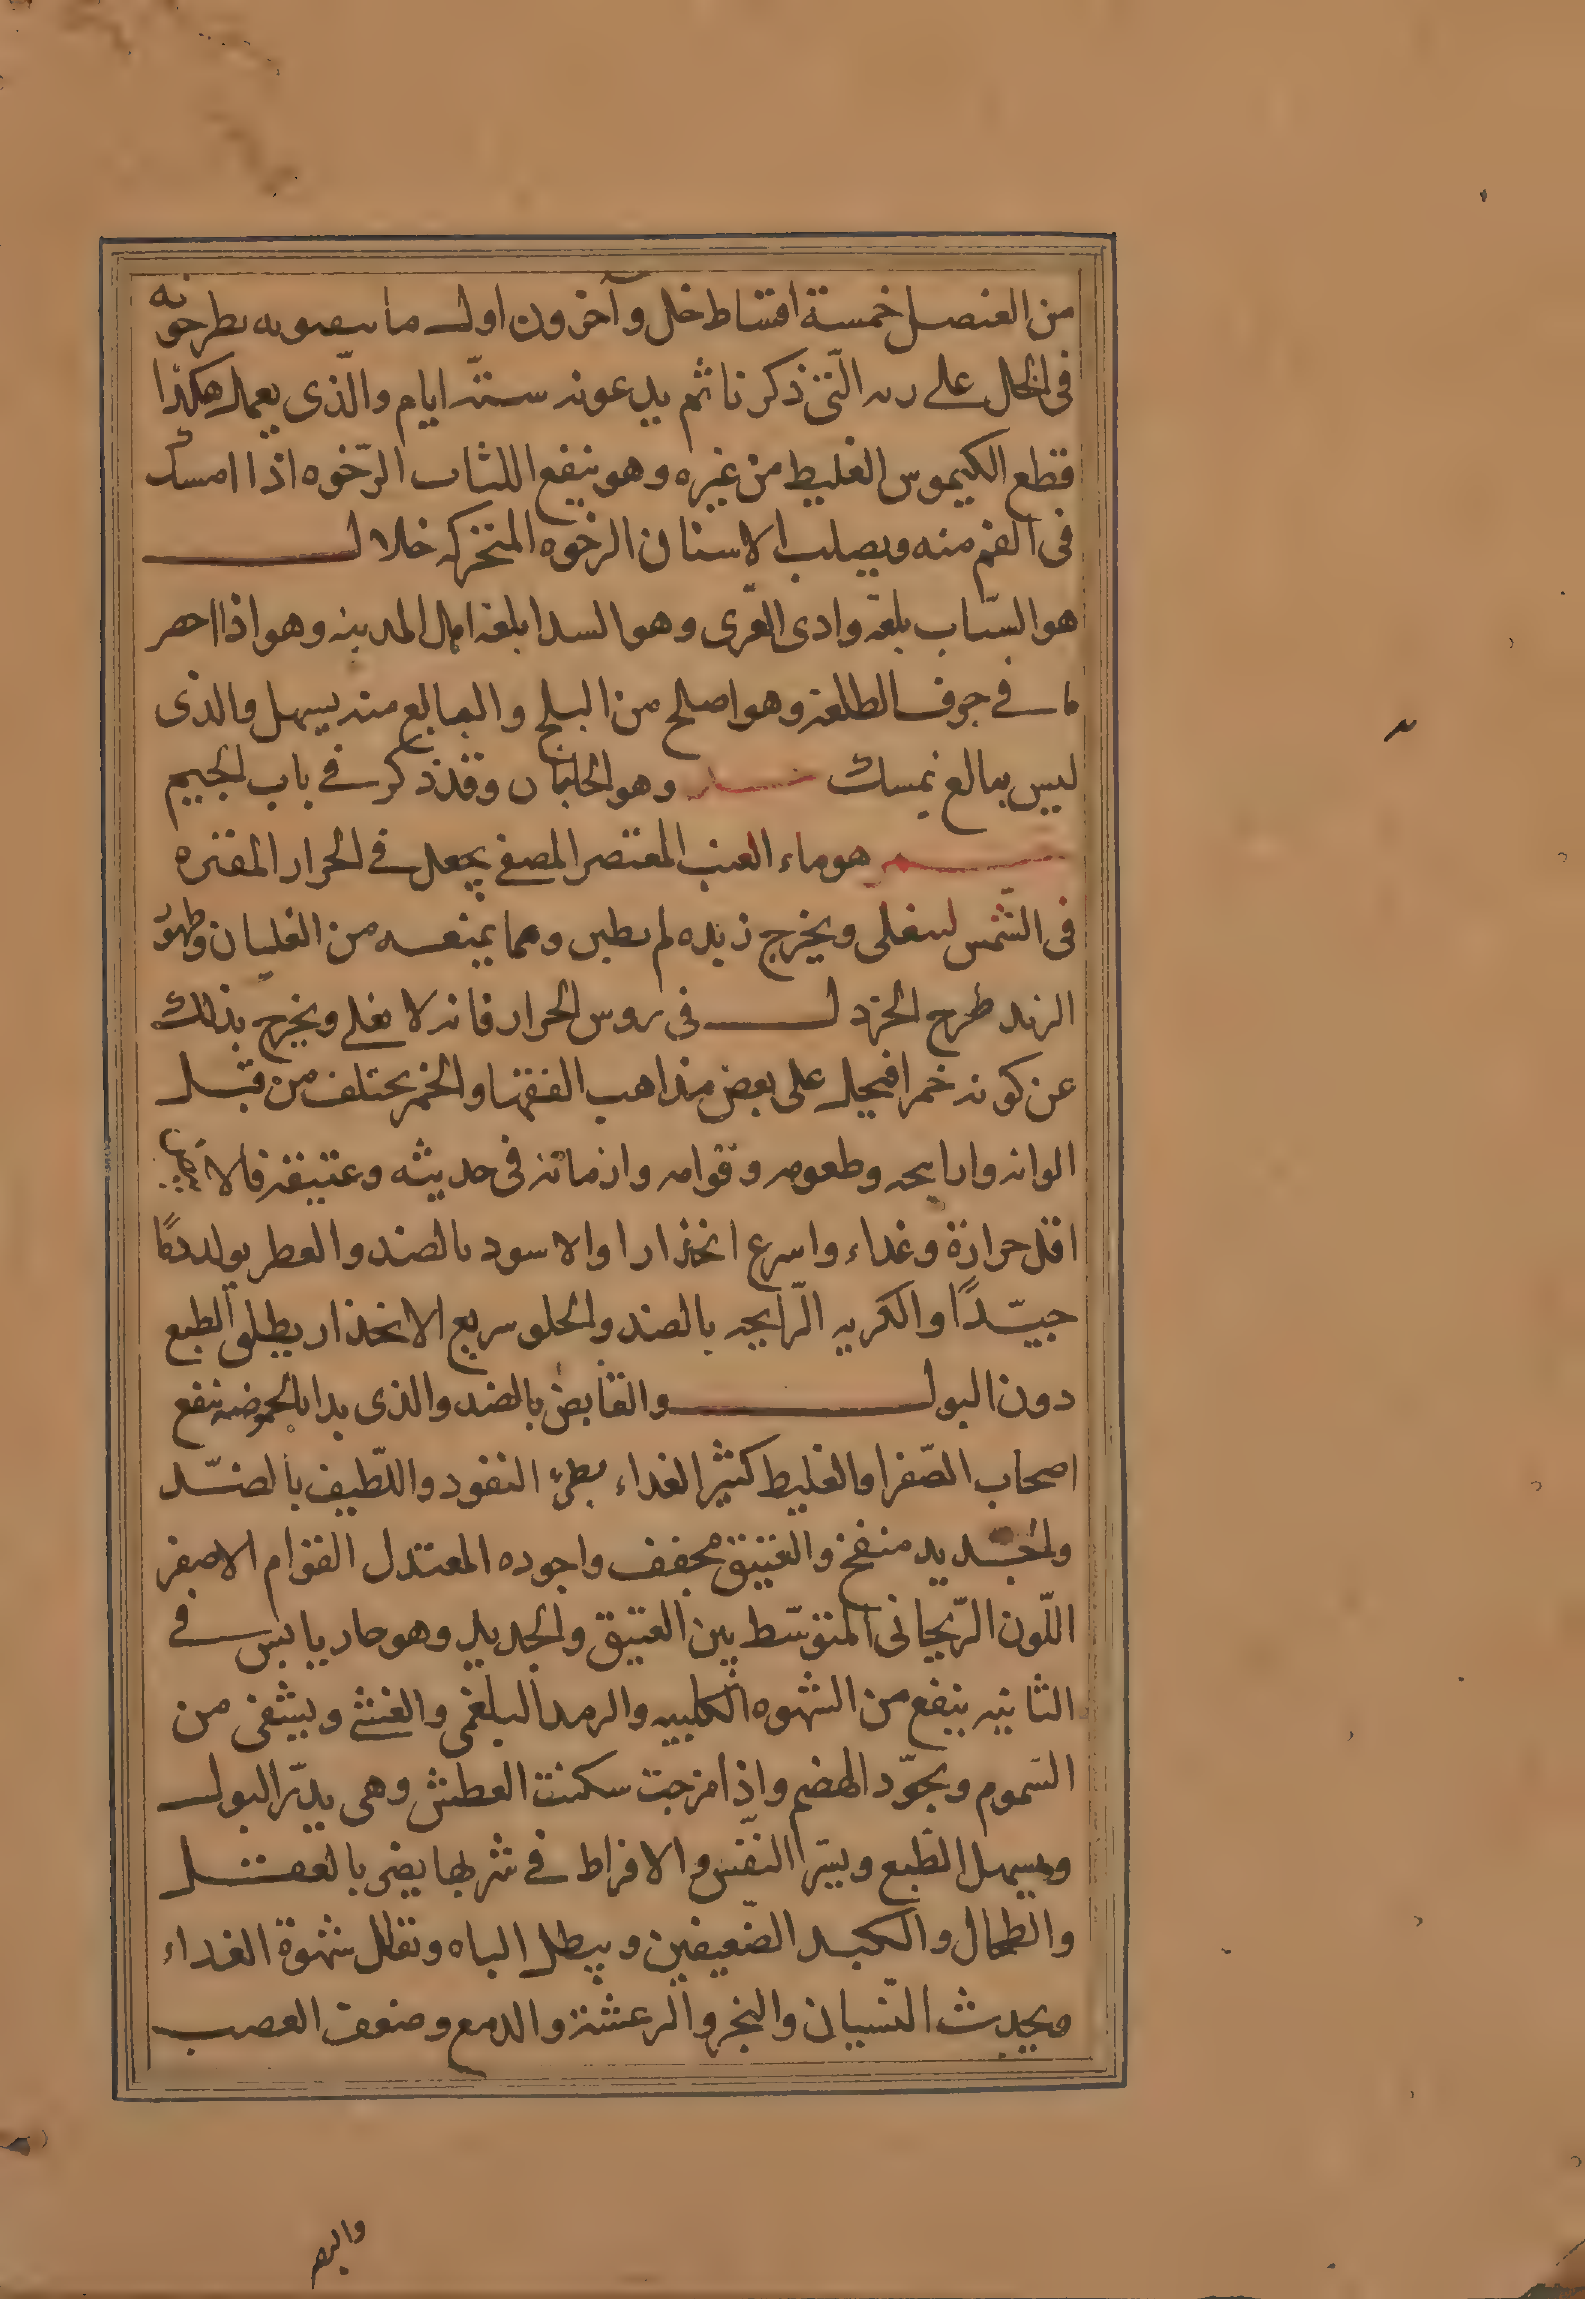 من العنصل خمسة اقساط خل وآخرون اول ما يطرحونه
فى الخل على التى ذكرنا ثم يدعونه ستة ايام والذى يعمل هكذا
قطع الكيموس الغليط من غيره وهو ينفع اللثاث الرّخوه اذا امسك
فى الفم منه ويصلب الاسنان الرخوه المتحركه خلال
هو السّياب بلغة وادى القرى وهو السدا بلغة اهل المدينه وهو اذا احضر
ما فى جوف الطلعة وهو اصلح من البلح و منه يسهل والذى
ليس يمسك وهو وقد ذكر فى باب الجيم
هو ماء العنب المعتصر المصفى يجعل فى الجرار المقيره
فى الشّمس ليغلى ويخرج زبده لم ومما يمنعه من الغليان
الزبد طرح الخردل فى روس الجرار فانه لا يغلى ويخرج بذلك
عن كونه خمرا فيحل على بعض مذاهب الفقها والخمر يختلف من قبل
الوانه وارايحه وطعومه وقوامه وازمانه فى حديثه وعتيقه فالابيض
اقل حرارة وغذاء واسرع انحدارا والاسود بالضد والعطر يولد دمًا
جيّدًا والكريه الرّايحه بالضد والحلو سريع الانحدار يطلق الطبع
دون البول والقابض بالضد والذى بدا بالحموضه ينفع
اصحاب الصّفرا والغليط كثير الغداء بطىء النفود واللّطيف بالضّد
والجديد منفخ والعتيق مجفف واجوده المعتدل القوام الاصفر
اللّون الرّيحانى المتوسّط بين العتيق والجديد وهو حار يابس فى
الثانيه ينفع من الشهوه الكلبيه والرمد البلغمى والغشى ويشفى من
السّموم ويجوّد الهضم واذا مزجت سكنت العطش وهى يدرّ البول
ويسهل الطّبع ويسرّ النّفس والافراط فى شربها يضر بالعقل
والطحال والكبد الضّعيفين ويبطل الباه وتقلل شهوة الغداء
ويحدث النّسيان والبخر والرعشة والدمع وضعف العصب